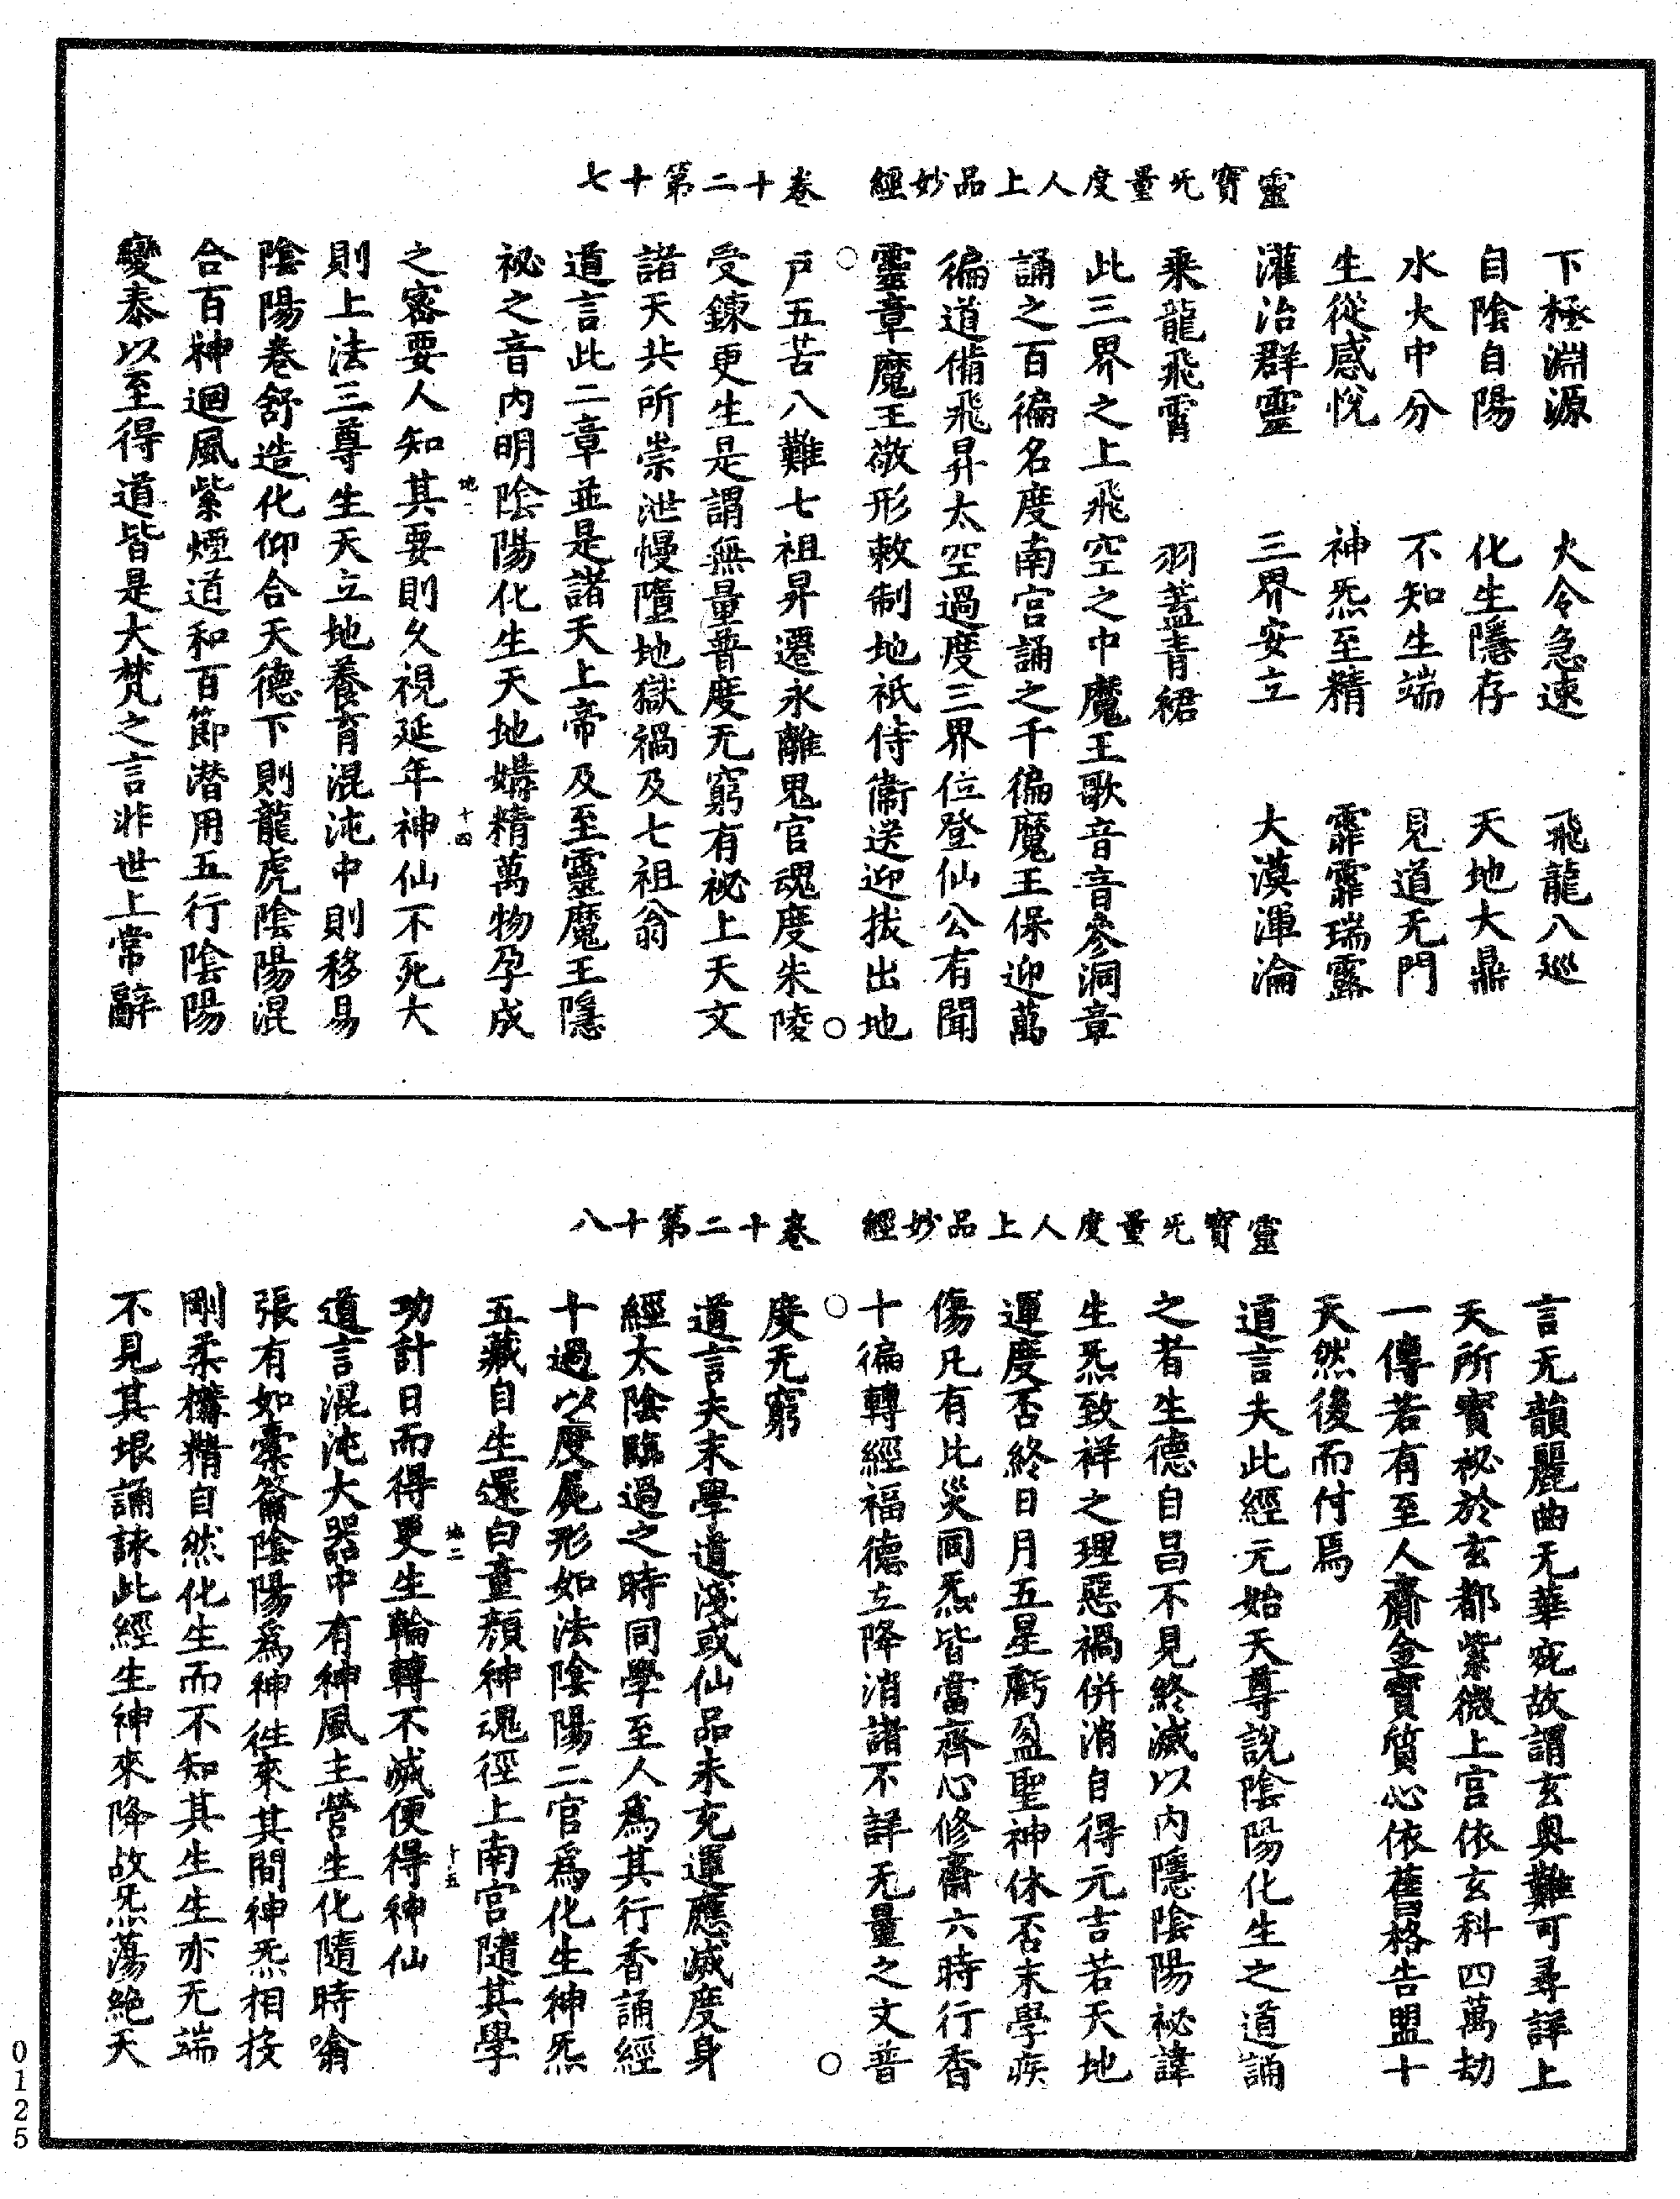 靈寶旡量度人上品妙經　卷二十第十七
下極淵源　火令急速　飛龍八巡
自陰自陽　化生隱存　天地大鼎
水火中分　不知生端　見道无門
生從感悅　神炁至精　霏霏瑞露
灌治群靈　三界安立　大漠渾淪
乘龍飛霄　羽蓋青裙
此三界之上飛空之中魔王歌音音參洞章
誦之百徧名度南宮誦之千徧魔王保迎萬
徧道備飛昇太空過度三界位登仙公有聞
靈章魔王敬形敕制地祇侍衞送迎拔出地
户五苦八難七祖昇遷永離鬼官魂度朱陵
受鍊更生是謂無量普度无窮有祕上天文
諸天共所崇泄慢墮地獄禍及七祖翁
道言此二章並是諸天上帝及至靈魔王隱
祕之音内明陰陽化生天地媾精萬物孕成
之密要人知其要則久視延年神仙不死大
地一　十四
則上法三尊生天立地養育混沌中則移易
陰陽卷舒造化仰合天德下則龍虎陰陽混
合百神迴風紫煙道和百節潛用五行陰陽
變泰以至得道皆是大梵之言非世上常辭
靈寶旡量度人上品妙經　卷二十第十八
言无韻麗曲无華宛故謂玄奥難可尋詳上
天所寳祕於玄都紫微上宮依玄科四萬劫
一傳若有至人齎金寳質心依舊格告盟十
天然後而付焉
道言夫此經元始天尊說陰陽化生之道誦
之者生德自昌不見終滅以内隱陰陽祕諱
生炁致祥之理惡禍併消自得元吉若天地
運度否終日月五星虧盈聖神休否末學疾
傷凡有比災同炁皆當齊心修齋六時行香
十徧轉經福德立降消諸不詳无量之文普
度无窮
道言夫末學道淺或仙品未充運應滅度身
經太陰臨過之時同學至人爲其行香誦經
十過以度屍形如法陰陽二官爲化生神炁
五藏自生還白童顏神魂徑上南宮隨其學
功計日而得更生輪轉不滅便得神仙
地二　十五
道言混沌大器中有神風主營生化隨時噏
張有如橐籥陰陽爲神徃來其間神炁相按
剛柔構精自然化生而不知其生生亦无端
不見其垠誦詠此經生神來降故炁蕩絶天
0125